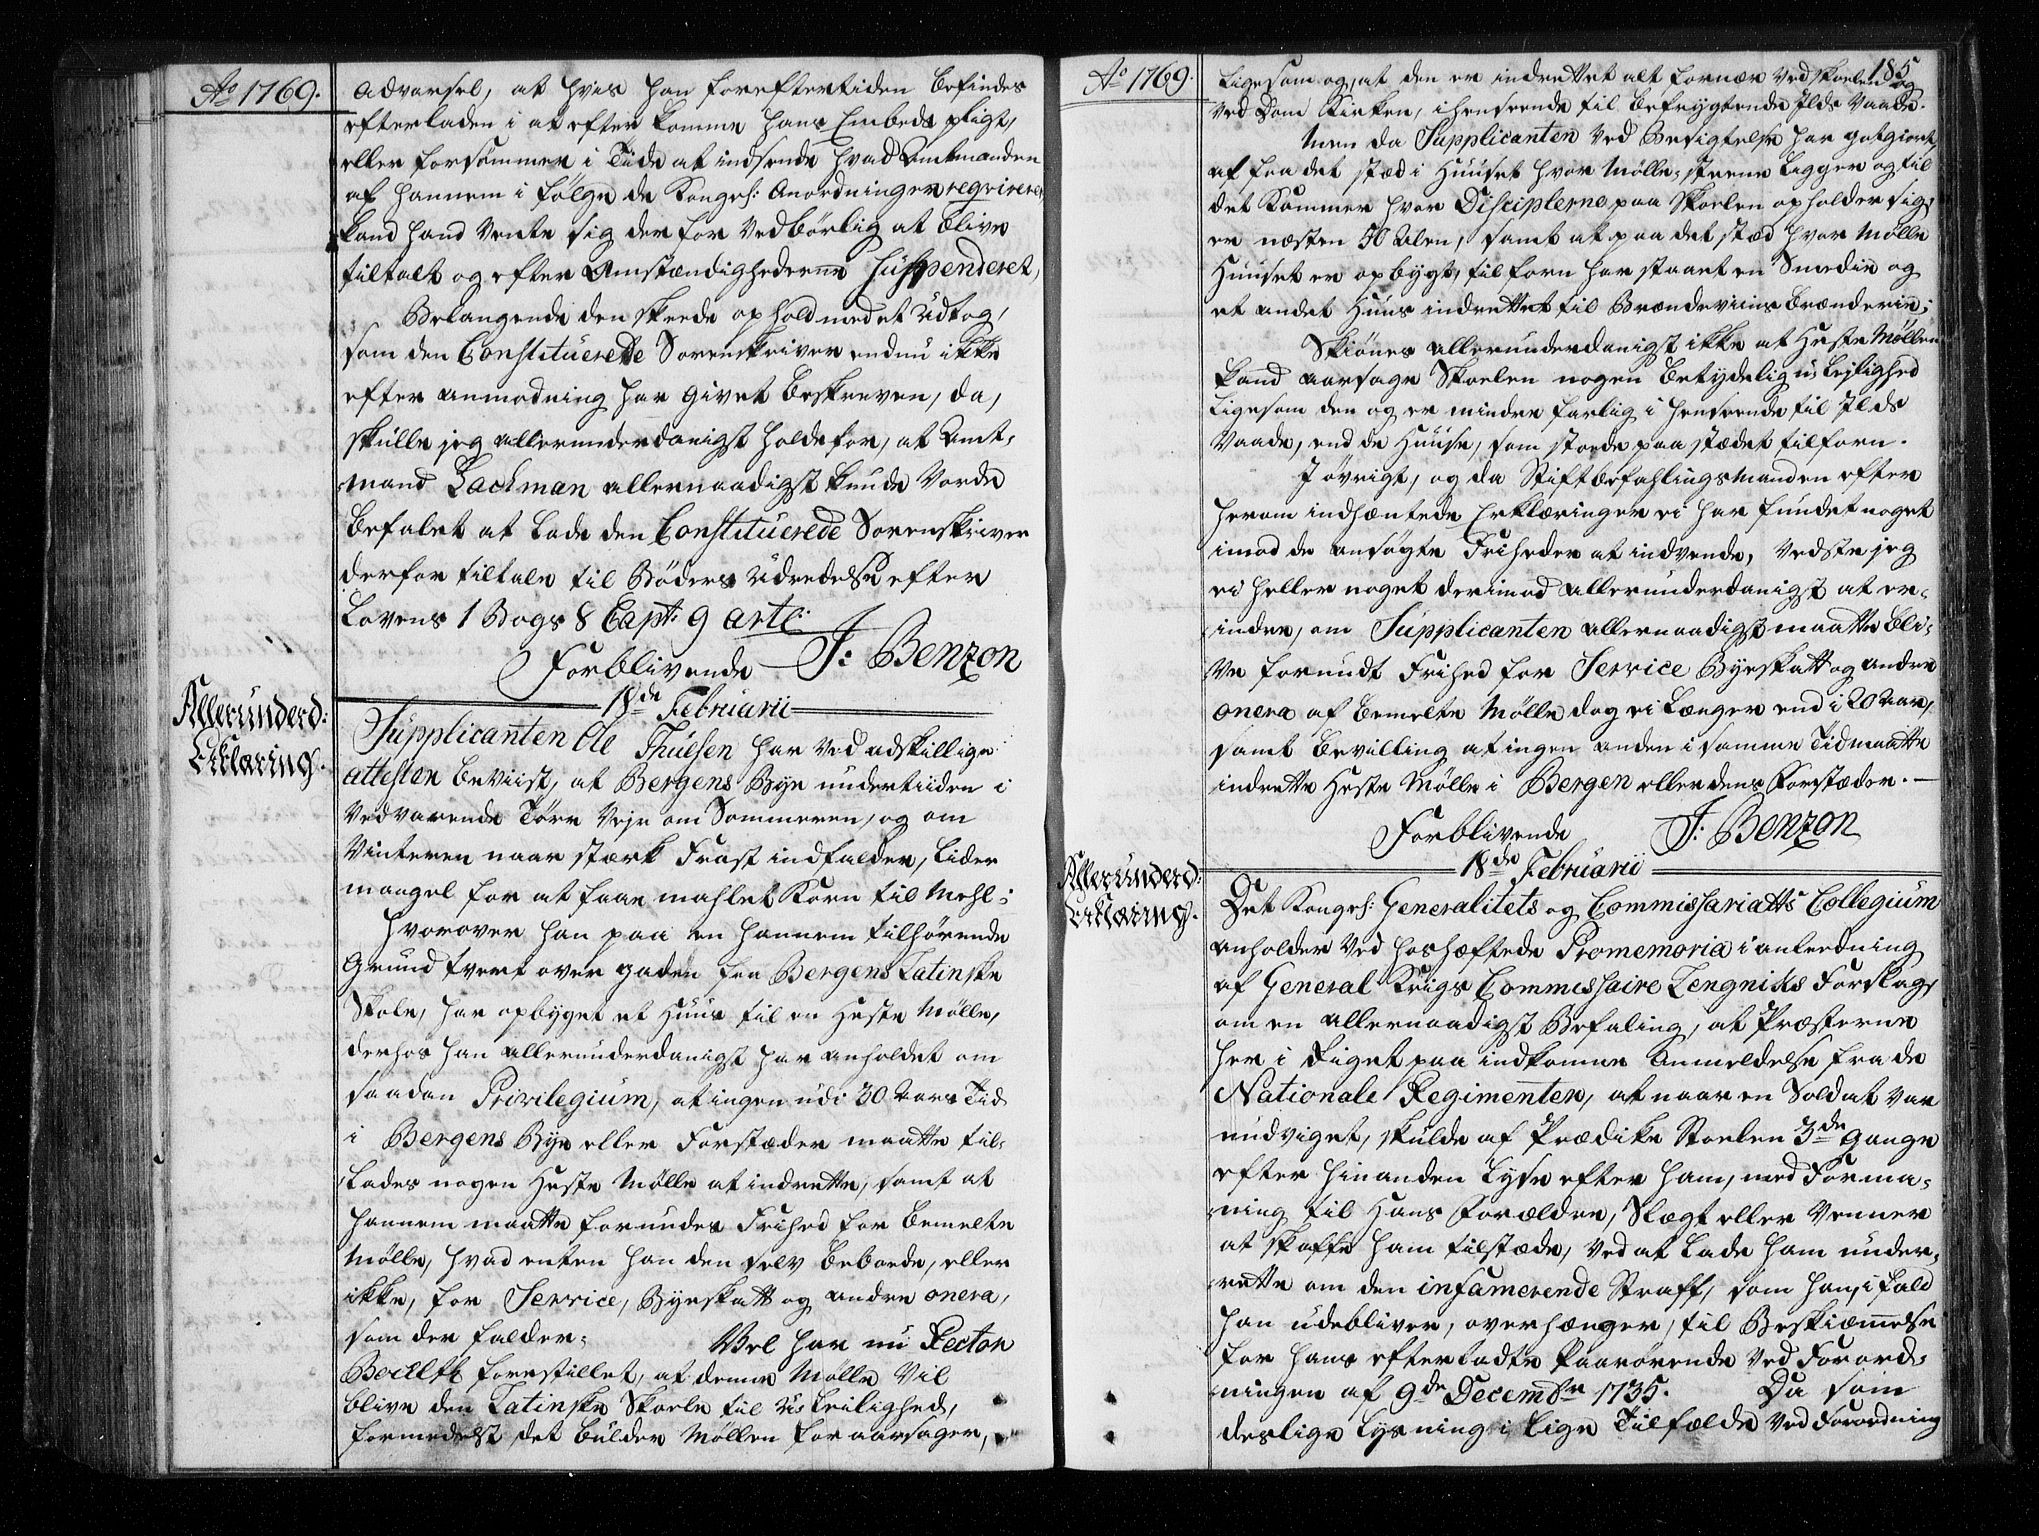 Ao 1769.
Advarsel, at hvis han foreftertiden befindes
efterladen i at efterkomme hans Embeds pligt,
eller forsømmer i Tide at indsende hvad Amtmanden
af hannem i følge de Kongel: Anordninger reqvirerer,
kand hand vente sig derfor vedbørlig at blive
tiltalt og efter Omstændighederne suspenderet,
Belangende den skeede ophold med et Udtog,
som den Constituerede Sorenskriver endnu ikke
efter anmodning har givet beskreven, da,
skulle jeg allerunderdanigst holde for, at Amt-
mand Lachman allernaadigst kunde vorde
befalet at lade den Constituerede Sorenskriver
derfor tiltale til Bøders Udredelse efter
Lovens 1 Bogs 8 Capt: 9 artc:
Forblivende J: Benzon
18de Februarii
Allerunderd:
Erklæring.
Supplicanten Ole Thuesen har ved adskillige
attester beviist, at Bergens Bye undertiiden i
vedvarende Tørr Vejr om Sommeren, og om
Vinteren naar stærk Frost indfalder, lider
mangel for at faae mahlet Korn til Mehl;
hvorover han paa en hannem tilhørende
Grund tvert over gaden fra Bergens Latinske
Skole, har opbygget et Huus til en Heste Mølle,
derhos han allerunderdanigst har anholdet om
saadan Privilegium, at ingen udi 30 Aars Tid
i Bergens Bye eller Forstæder maatte til-
lades nogen Heste Mølle at indrette, samt at
hannem maatte forundes Frihed for bemelte
Mølle, hvad enten han den selv beboede, eller
ikke, for Service, Byeskatt og andre onera,
som der falder; Vel har nu Rector
Boalth forestillet, at denne Mølle vil
blive den Latinske Skoele til U-leilighed,
formedelst det bulder Møllen foraarsager,
Ao 1769.
185
ligesom og, at den er indrettet alt fornær ved Skoelen og
ved Dom Kirken, i henseende til befrygtende Ilds Vaade.
Men da Supplicanten ved Besigtelse har godtgiort,
af fra det stæd i Huuset hvor Mølle-steene ligger og til
det Kammer hvor Disciplerne paa Skoelen opholder sig,
er næsten 50 Alen, samt at paa det stæd hvor Mølle
Huuset er opbygt, tilforn har staaet en Smedie og
et andet Huus indrettet til Brændeviins brænderie;
Skiønes allerunderdanigst ikke at Heste Møllen
kand aarsage Skoelen nogen betydelig u-lejlighed
ligesom den og er mindre farlig i henseende til Ilds
Vaade, end de Huuse, som stoede paa stædet tilforn.
I øvrigt, og da Stiftbefahlingsmanden efter
herom indhæntede Erklæringer ei har fundet noget
imod de ansøgte Friheder at indvende, vedste jeg
ei heller noget derimod allerunderdanigst at er-
indre, om Supplicanten allernaadigst maatte bli-
ve forundt Frihed for Service Byeskatt og andre
onera af bemelte Mølle dog ei længer end i 20 Aar,
samt bevilling at ingen anden i samme Tid maatte
indrette Heste Mølle i Bergen eller dens Forstæder.
Forblivende J: Benzon
18de Februarii
Allerunderd:
Erklæring.
Det Kongel: Generalitets og Commissariatts Collegium
anholder ved hoshæftede Promemoria i anleedning
af General Krigs Commissaire Lengnicks Forslag,
om en allernaadigst Befaling, at Præsterne
her i Riget paa indkomne Anmeldelse fra de
Nationale Regimenter, at naar en Soldat var
undviget, skulde af Prædike Stoelen 3de gange
efter hinanden lyse efter ham, med Forma-
ning til Hans Forældre, Slægt eller Venner
at skaffe ham tilstæde, ved at lade ham under-
rette om den infamerende Straff, som han, i fald
han udebliver, overhænger, til Beskiæmmelse
for hans efterladte Paarørende ved Forord-
ningen af 9de Decembr 1735. Da som
deslige Lysning i lige Tilfælde ved Forordning